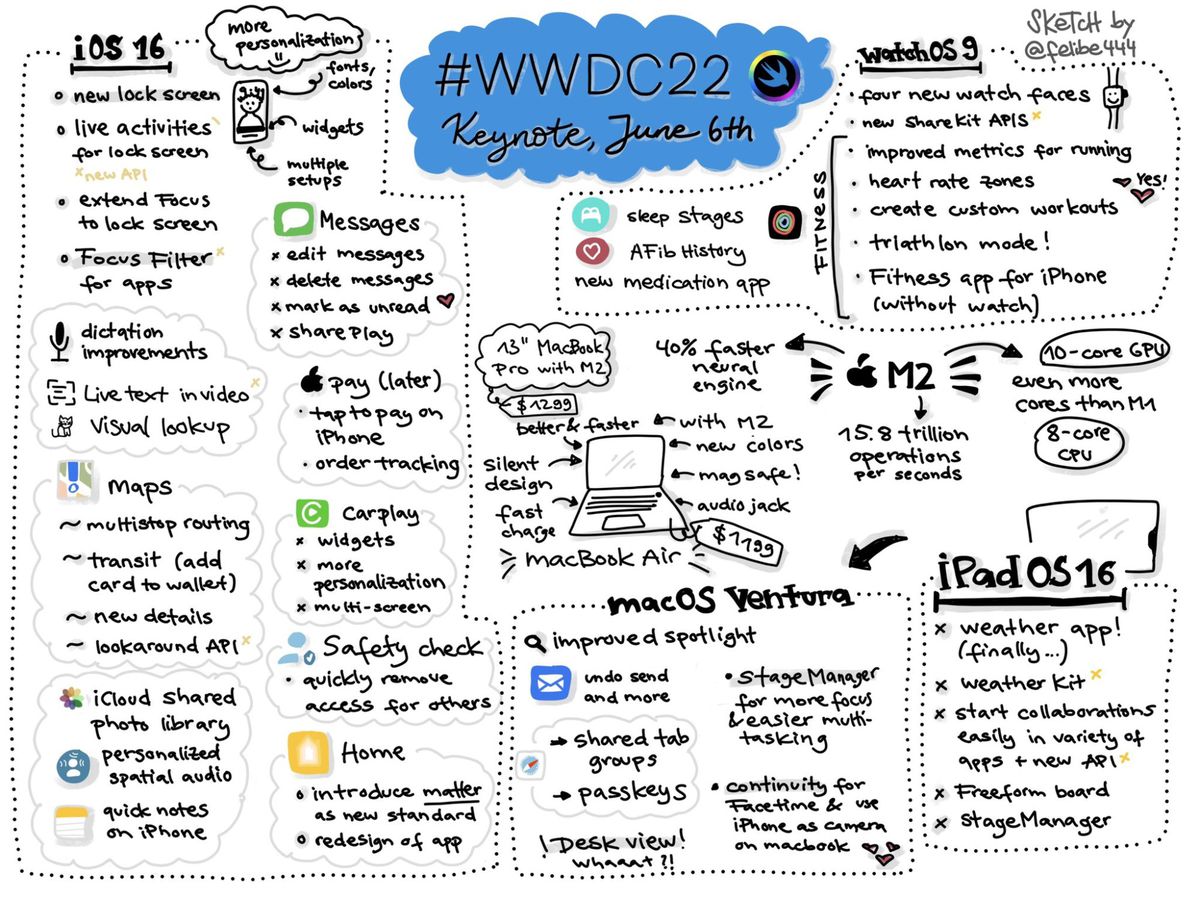 #WWDC22
Keynote, June 6th
SKETCH by
@felibe444
iOS 16
more
personalization
!!
fonts,
colors
widgets
multiple
setups
9:41
new lock screen
live activities
for lock screen
×new API
extend Focus
to lock screen
Focus Filter ×
for apps
dictation
improvements
Live text in video ×
Visual lookup
Maps
~ multistop routing
~ transit (add
card to wallet)
~ new details
~ lookaround API ×
iCloud shared
photo library
personalized
spatial audio
quick notes
on iPhone
Messages
× edit messages
× delete messages
× mark as unread
× sharePlay
pay (later)
• tap to pay on
iPhone
• order tracking
Carplay
× widgets
× more
personalization
× multi-screen
Safety check
• quickly remove
access for others
Home
introduce matter
as new standard
redesign of app
sleep stages
AFib History
new medication app
watchOS 9
• four new watch faces
• new ShareKit APIS ×
FITNESS
• improved metrics for running
• heart rate zones
Yes!
• create custom workouts
• triathlon mode!
• Fitness app for iPhone
(without watch)
13" MacBook
Pro with M2
$1299
better & faster
silent
design
fast
charge
with M2
new colors
magsafe!
audio jack
$1199
macBook Air
M2
40% faster
neural
engine
15.8 trillion
operations
per seconds
10-core GPU
even more
cores than M1
8-core
CPU
macOS Ventura
improved spotlight
undo send
and more
→ shared tab
groups
→ passkeys
! Desk view!
whaaat ?!
• StageManager
for more focus
& easier multi-
tasking
• continuity for
Facetime & use
iPhone as camera
on macbook
iPadOS 16
× weather app!
(finally...)
× weather Kit ×
× start collaborations
easily in variety of
apps + new API ×
× Freeform board
× StageManager